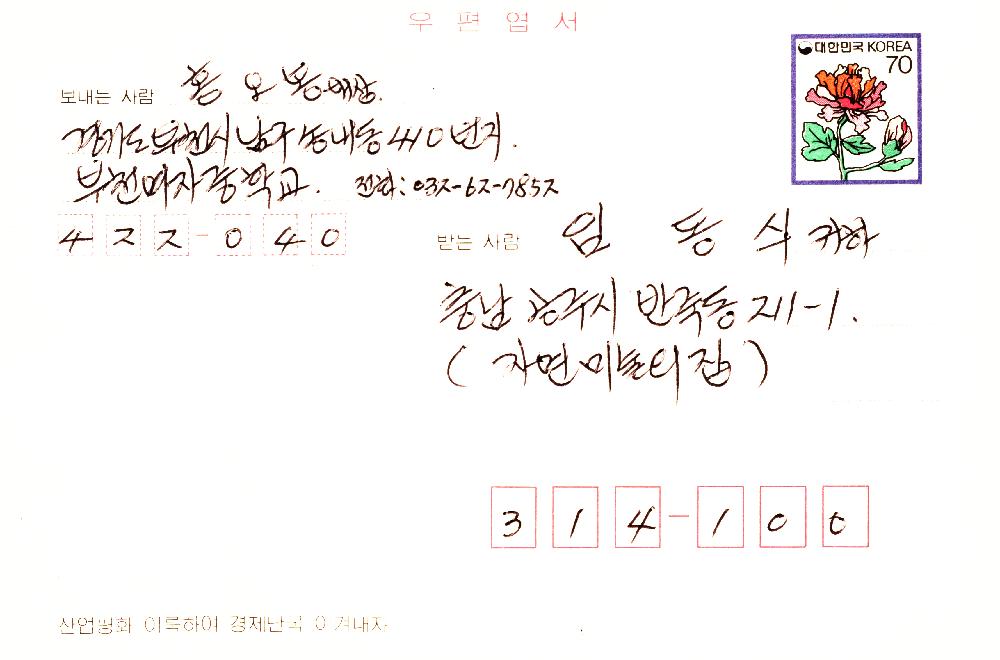 우편엽서
대한민국 KOREA
70
보내는 사람 홍 오 봉
경기도 부천시 남구 송내동 410번지.
부천여자중학교. 전화: 032-62-7852
422-040
받는 사람 임 동 식 귀하
충남 공주시 반죽동 211-1.
(자연미술의집)
314-100
산업평화 이룩하여 경제난국 이겨내자